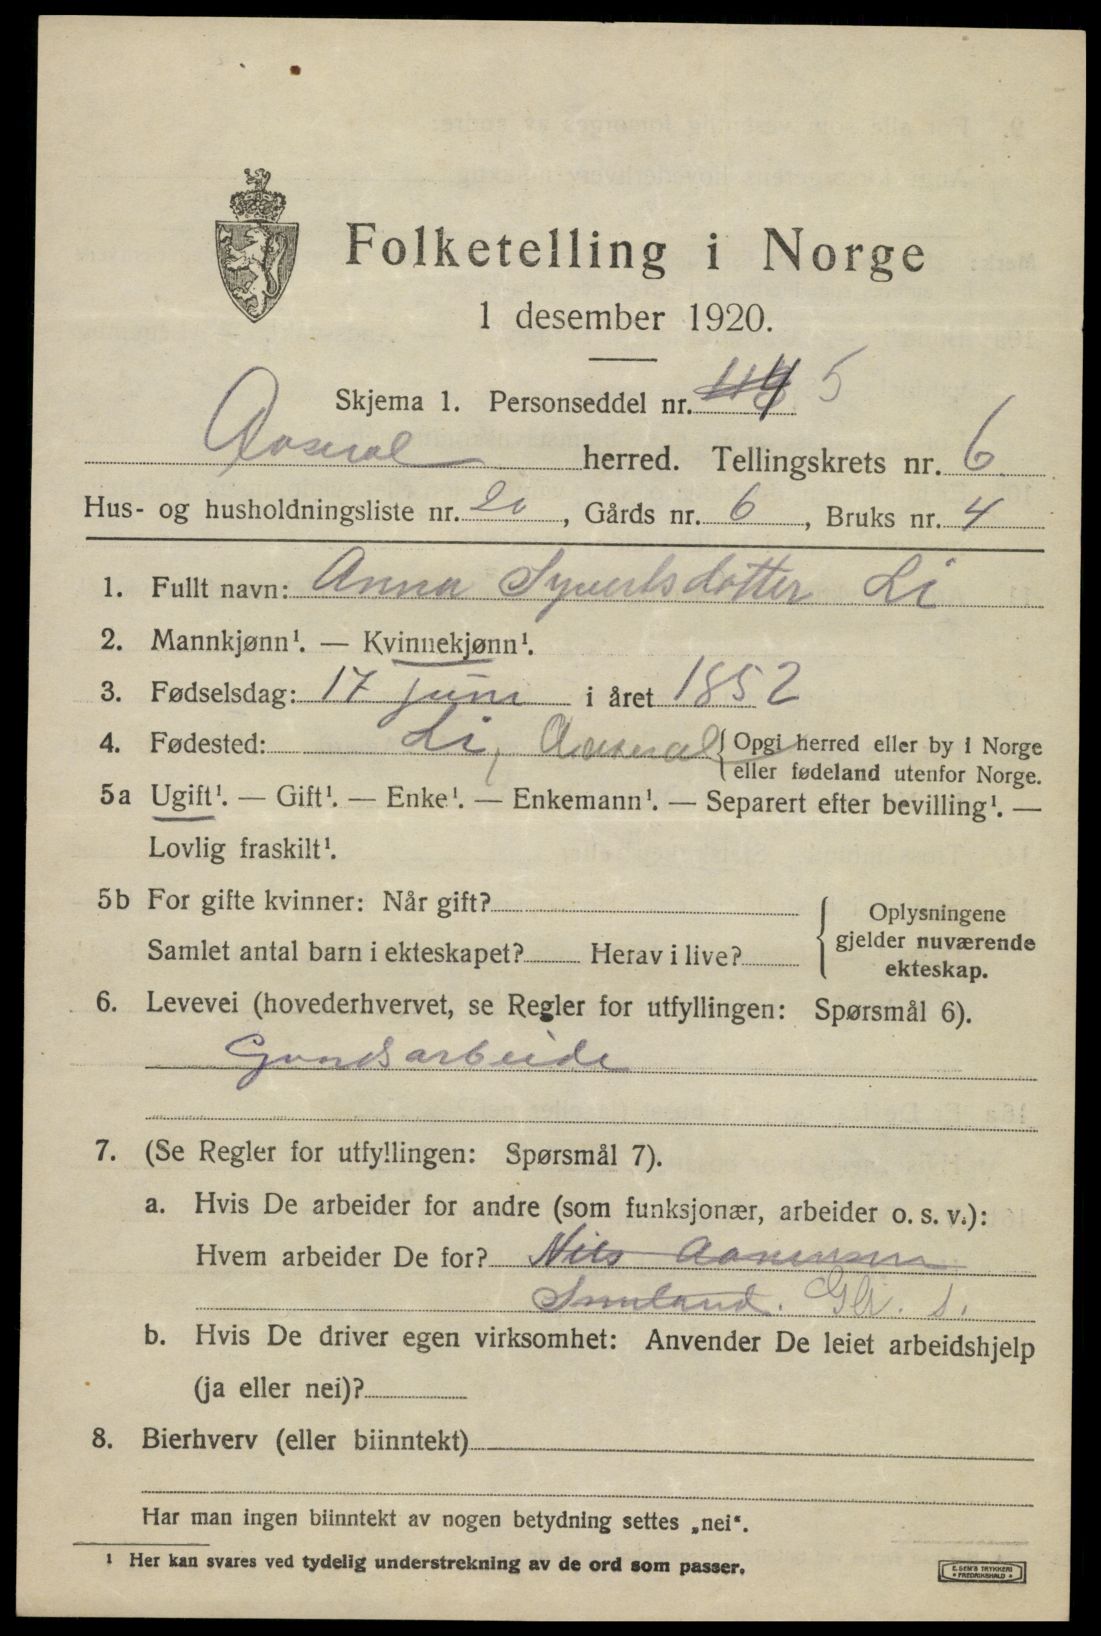 Folketelling i Norge
1 desember 1920.
Skjema 1. Personseddel nr. 5
Aaseral herred. Tellingskrets nr. 6
Hus- og husholdningsliste nr. 20, Gårds nr. 6, Bruks nr. 4
1. Fullt navn: Anna Syvertsdotter Li
2. Mannkjønn¹. — Kvinnekjønn¹.
3. Fødselsdag: 17 juni i året 1852
4. Fødested: Li, Aaseral { Opgi herred eller by i Norge
eller fødeland utenfor Norge.
5a Ugift¹. — Gift¹. — Enke¹. — Enkemann¹. — Separert efter bevilling¹. —
Lovlig fraskilt¹.
5b For gifte kvinner: Når gift?
Samlet antal barn i ekteskapet? Herav i live?
{ Oplysningene
gjelder nuværende
ekteskap.
6. Levevei (hovederhvervet, se Regler for utfyllingen: Spørsmål 6).
Gaardsarbeide
7. (Se Regler for utfyllingen: Spørsmål 7).
a. Hvis De arbeider for andre (som funksjonær, arbeider o. s. v.):
Hvem arbeider De for? Nils Aanensen
b. Hvis De driver egen virksomhet: Anvender De leiet arbeidshjelp
(ja eller nei)?
8. Bierhverv (eller biinntekt)
Har man ingen biinntekt av nogen betydning settes „nei“.
¹ Her kan svares ved tydelig understrekning av de ord som passer.
E. SEM'S TRYKKERI
• FREDRIKSHALD •